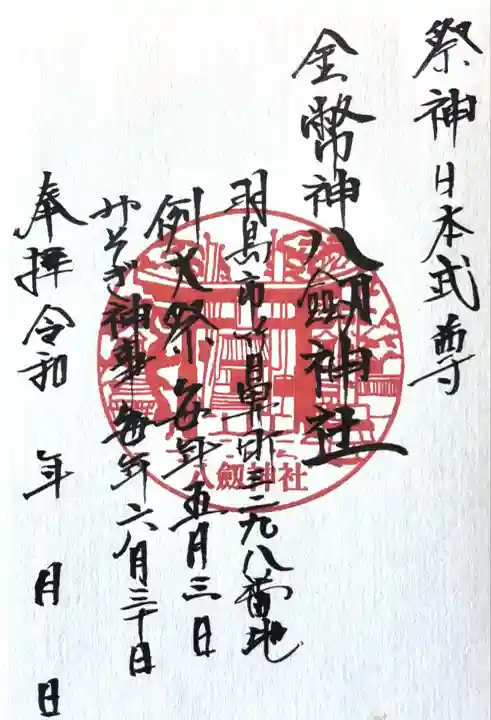 祭神日本武尊
金幣神八劔神社
羽島市竹鼻町三二九八番地
例大祭、毎年五月三日
みそぎ神事 毎年六月三十日
奉拝令和 年 月 日
八劔神社